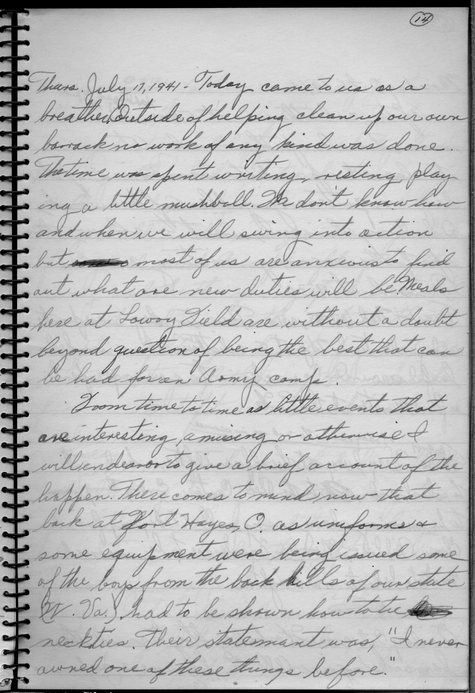 14
Thurs. July 17, 1941 - Today came to us as a
breather. Outside of helping clean up our own
barrack no work of any kind was done.
The time was spent writing, resting, play
ing a little mushball. We don't know how
and when we will swing into action
but most of us are anxious to find
out what are new duties will be. Meals
here at Lowry Field are without a doubt
beyond question of being the best that can
be had for an Army camp.
From time to time as little events that
are interesting, amusing or otherwise I
will endeavor to give a brief account of the
happen. There comes to mind now that
back at Fort Hayes, O. as uniforms &
some equipment were being issued some
of the boys from the back hills of our state
(W. Va.) had to be shown how to tie
neckties. Their statement was, "I never
owned one of these things before."